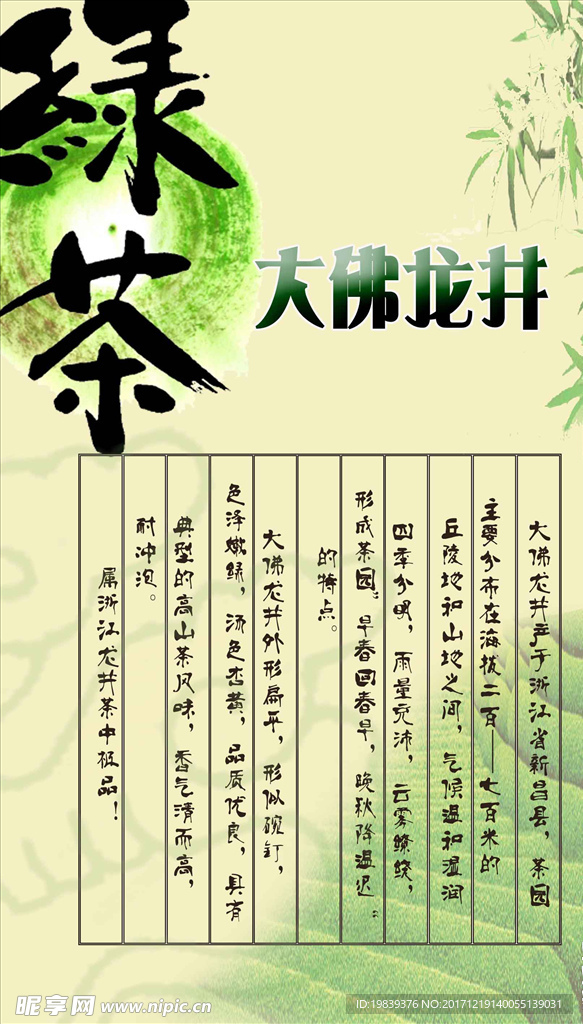 綠茶
大佛龙井
大佛龙井产于浙江省新昌县，茶园
主要分布在海拔二百——七百米的
丘陵地和山地之间，气候温和湿润
四季分明，雨量充沛，云雾缭绕，
形成茶园：早春回春早，晚秋降温迟：
的特点。
大佛龙井外形扁平，形似碗钉，
色泽嫩绿，汤色杏黄，品质优良，具有
典型的高山茶风味，香气清而高，
耐冲泡。
属浙江龙井茶中极品！
昵享网 www.nipic.cn
ID:19839376 NO:20171219140055139031